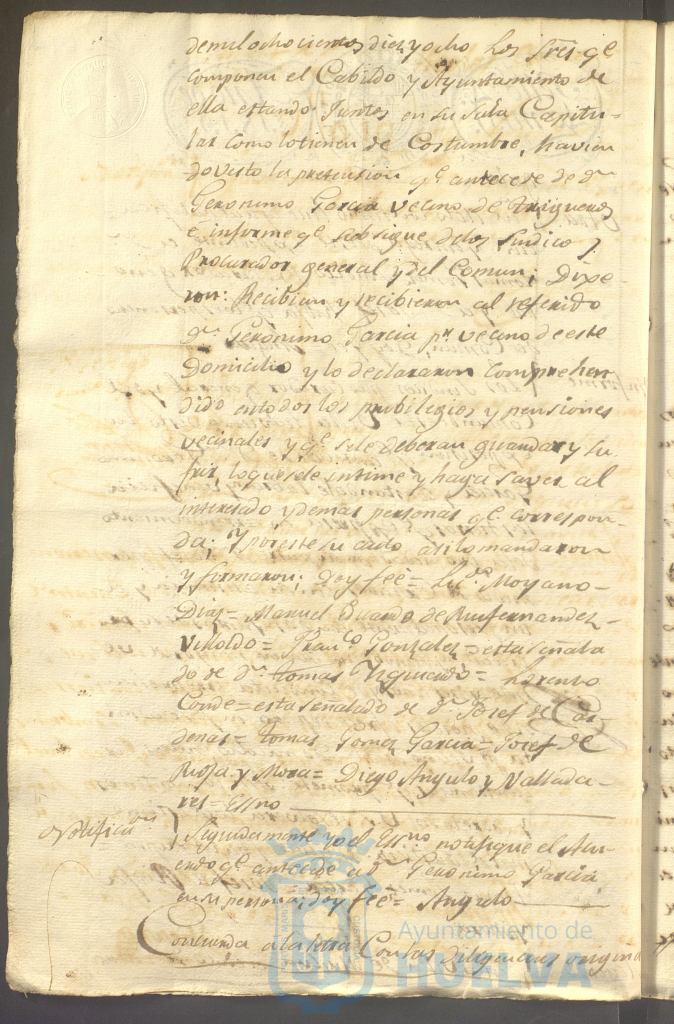 de mil ochocientos diez y ocho Los Sres. qe
componen el Cabildo y Ayuntamiento de
ella estando Juntos en su Sala Capitu-
lar como lo tienen de Costumbre, havien
do visto la pretension qe antecede de dn
Geronimo Garcia vecino de Trigueros
e informe qe subsigue delos Sindico y
Procurador general y del Comun; Dixe-
ron: Recibian y recibieron al referido
dn Geronimo Garcia pr vecino de este
Domicilio y lo declararon Comprehen
dido en todos los pribilegios y pensiones
vecinales y qe sele deberan guardar y su-
frir, lo que sele intime y haga saver al
interesado y demas personas qe correspon-
da; Y por este su auto asilo mandaron
y firmaron; doy feé= Lic.do Moyano=
Diaz= Manuel de Ruifernandez
Villoldo= Franco Gonzalez= esta señala
do de dn tomas Yzquierdo= Lorenzo
Conde= esta señalado de dn Josef de Car-
denas= tomas Gomez Garcia= Josef de
Rioja y Mora= Diego Angulo y Vallada-
res= Essno
Notificon } Seguidamente yo el Essno notifique el Acu-
erdo qe antecede a dn Geronimo Garcia
en su persona; doy feé= Angulo
Concuerda ala letra Con las diligencias origina
Ayuntamiento de
HUELVA